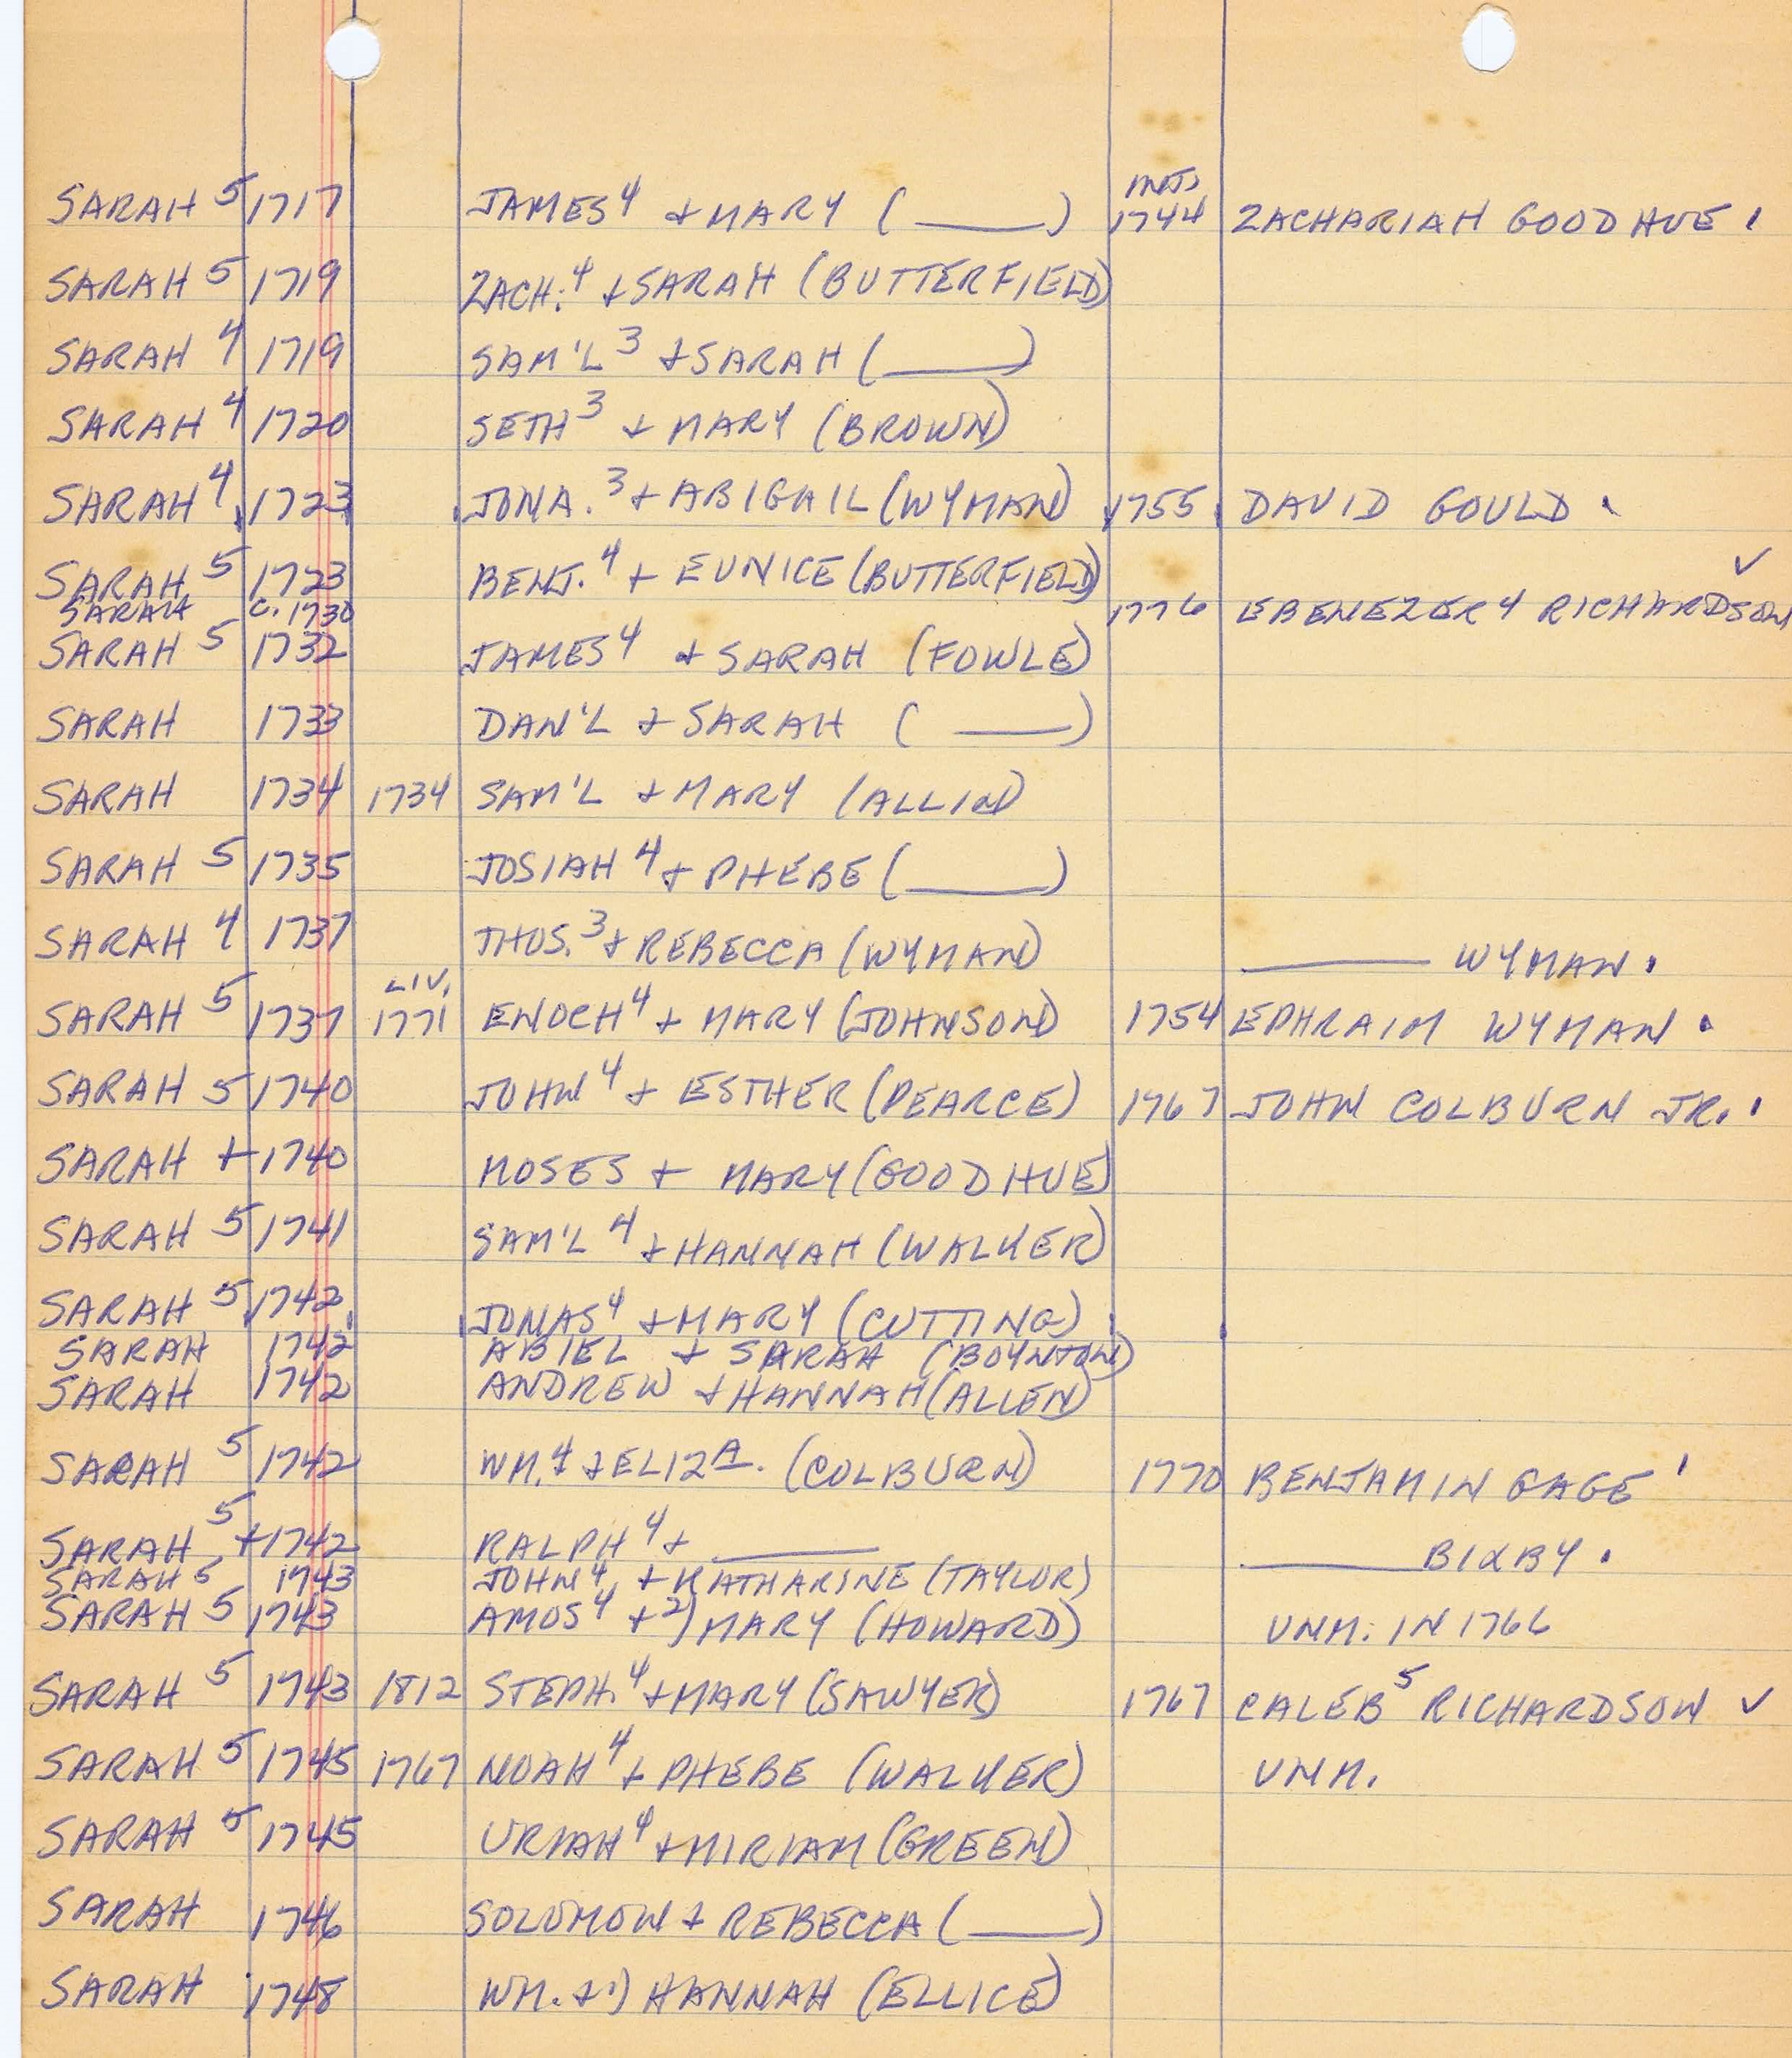 SARAH 5 1717 JAMES 4 + MARY ( ____ ) INTS 1744 ZACHARIAH GOODHUE
SARAH 5 1719 ZACH. 4 + SARAH (BUTTERFIELD)
SARAH 4 1719 SAM'L 3 + SARAH ( ____ )
SARAH 4 1720 SETH 3 + MARY (BROWN)
SARAH 4 1723 JONA. 3 + ABIGAIL (WYMAN) 1755 DAVID GOULD
SARAH 5 1723 BENJ. 4 + EUNICE (BUTTERFIELD) ✓
SARAH C. 1730 1776 EBENEZER 4 RICHARDSON
SARAH 5 1732 JAMES 4 + SARAH (FOWLE)
SARAH 1733 DAN'L + SARAH ( ____ )
SARAH 1734 1734 SAM'L + MARY (ALLIN)
SARAH 5 1735 JOSIAH 4 + PHEBE ( ____ )
SARAH 4 1737 THOS. 3 + REBECCA (WYMAN) ____ WYMAN.
SARAH 5 1737 LIV. 1771 ENOCH 4 + MARY (JOHNSON) 1754 EPHRAIM WYMAN.
SARAH 5 1740 JOHN 4 + ESTHER (PEARCE) 1767 JOHN COLBURN JR.
SARAH + 1740 MOSES + MARY (GOODHUE)
SARAH 5 1741 SAM'L 4 + HANNAH (WALKER)
SARAH 5 1742 JONAS 4 + MARY (CUTTING)
SARAH 1742 ABIEL + SARAH (BOYNTON)
SARAH 1742 ANDREW + HANNAH (ALLEN)
SARAH 5 1742 WM. 4 + ELIZA. (COLBURN) 1770 BENJAMIN GAGE
SARAH 5 + 1742 RALPH 4 + ____ ____ BIXBY.
SARAH 5 1743 JOHN 4 + KATHARINE (TAYLOR)
SARAH 5 1743 AMOS 4 + 2) MARY (HOWARD) UNM. IN 1766
SARAH 5 1743 1812 STEPH. 4 + MARY (SAWYER) 1767 CALEB 5 RICHARDSON ✓
SARAH 5 1745 1767 NOAH 4 + PHEBE (WALKER) UNM.
SARAH 5 1745 URIAH 4 + MIRIAM (GREEN)
SARAH 1746 SOLOMON + REBECCA ( ____ )
SARAH 1748 WM. + 1) HANNAH (ELLICE)